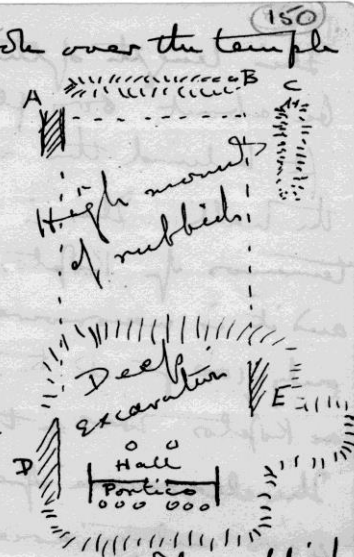 150
over the temple
A
B
C
High mound
of rubbish
Deep
excavation
E
D
Hall
Portico